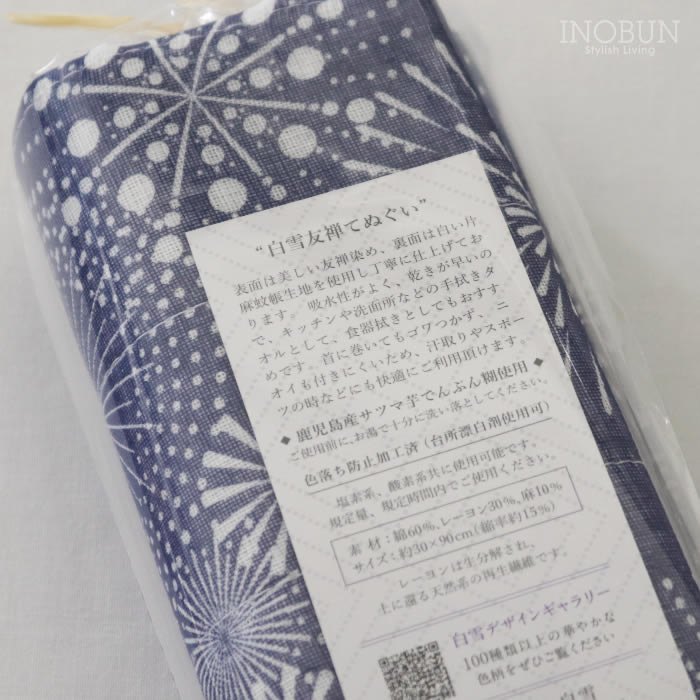 INOBUN
Stylish Living
“白雪友禅てぬぐい”
表面は美しい友禅染め、裏面は白い片
麻蚊帳生地を使用し丁寧に仕上げてお
ります。吸水性がよく、乾きが早いの
で、キッチンや洗面所などの手拭きタ
オルとして、食器拭きとしてもおすす
めです。首に巻いてもゴワつかず、ニ
オイも付きにくいため、汗取りやスポー
ツの時などにも快適にご利用頂けます。
◆鹿児島産サツマ芋でんぷん糊使用◆
ご使用前に、お湯で十分に洗い落としてください。
色落ち防止加工済（台所漂白剤使用可）
塩素系、酸素系共に使用可能です。
規定量、規定時間内でご使用ください。
素材：綿60%、レーヨン30%、麻10%
サイズ：約30×90cm（縮率約15%）
レーヨンは生分解され、
土に還る天然系の再生繊維です。
白雪デザインギャラリー
100種類以上の華やかな
色柄をぜひご覧ください